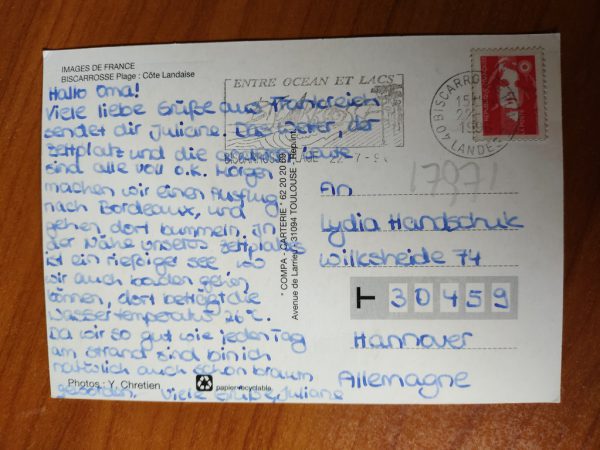 IMAGES DE FRANCE
BISCARROSSE Plage : Côte Landaise
Hallo Oma!
Viele liebe Grüße aus Frankreich
sendet dir Juliane. Das Wetter, der
Zeltplatz und die anderen Leute
sind alle voll o.k. Morgen
machen wir einen Ausflug
nach Bordeaux, und
gehen dort bummeln. In
der Nähe unseres Zeltplatzes
ist ein riesiger See wo
wir auch baden gehen
können, dort beträgt die
Wassertemperatur 26°C.
Da wir so gut wie jeden Tag
am Strand sind bin ich
natürlich auch schon braun
geworden. Viele Grüße Juliane
Photos : Y. Chretien
papier recyclable
" COMPA - CARTERIE " 62 20 20
Avenue de Larrieu 31094 TOULOUSE
ENTRE OCEAN ET LACS
BISCARROSSE PLAGE 22-7-9
40 BISCARROSSE
LANDES
17971
An
Lydia Handschuk
Wilksheide 74
T 30459
Hannover
Allemagne